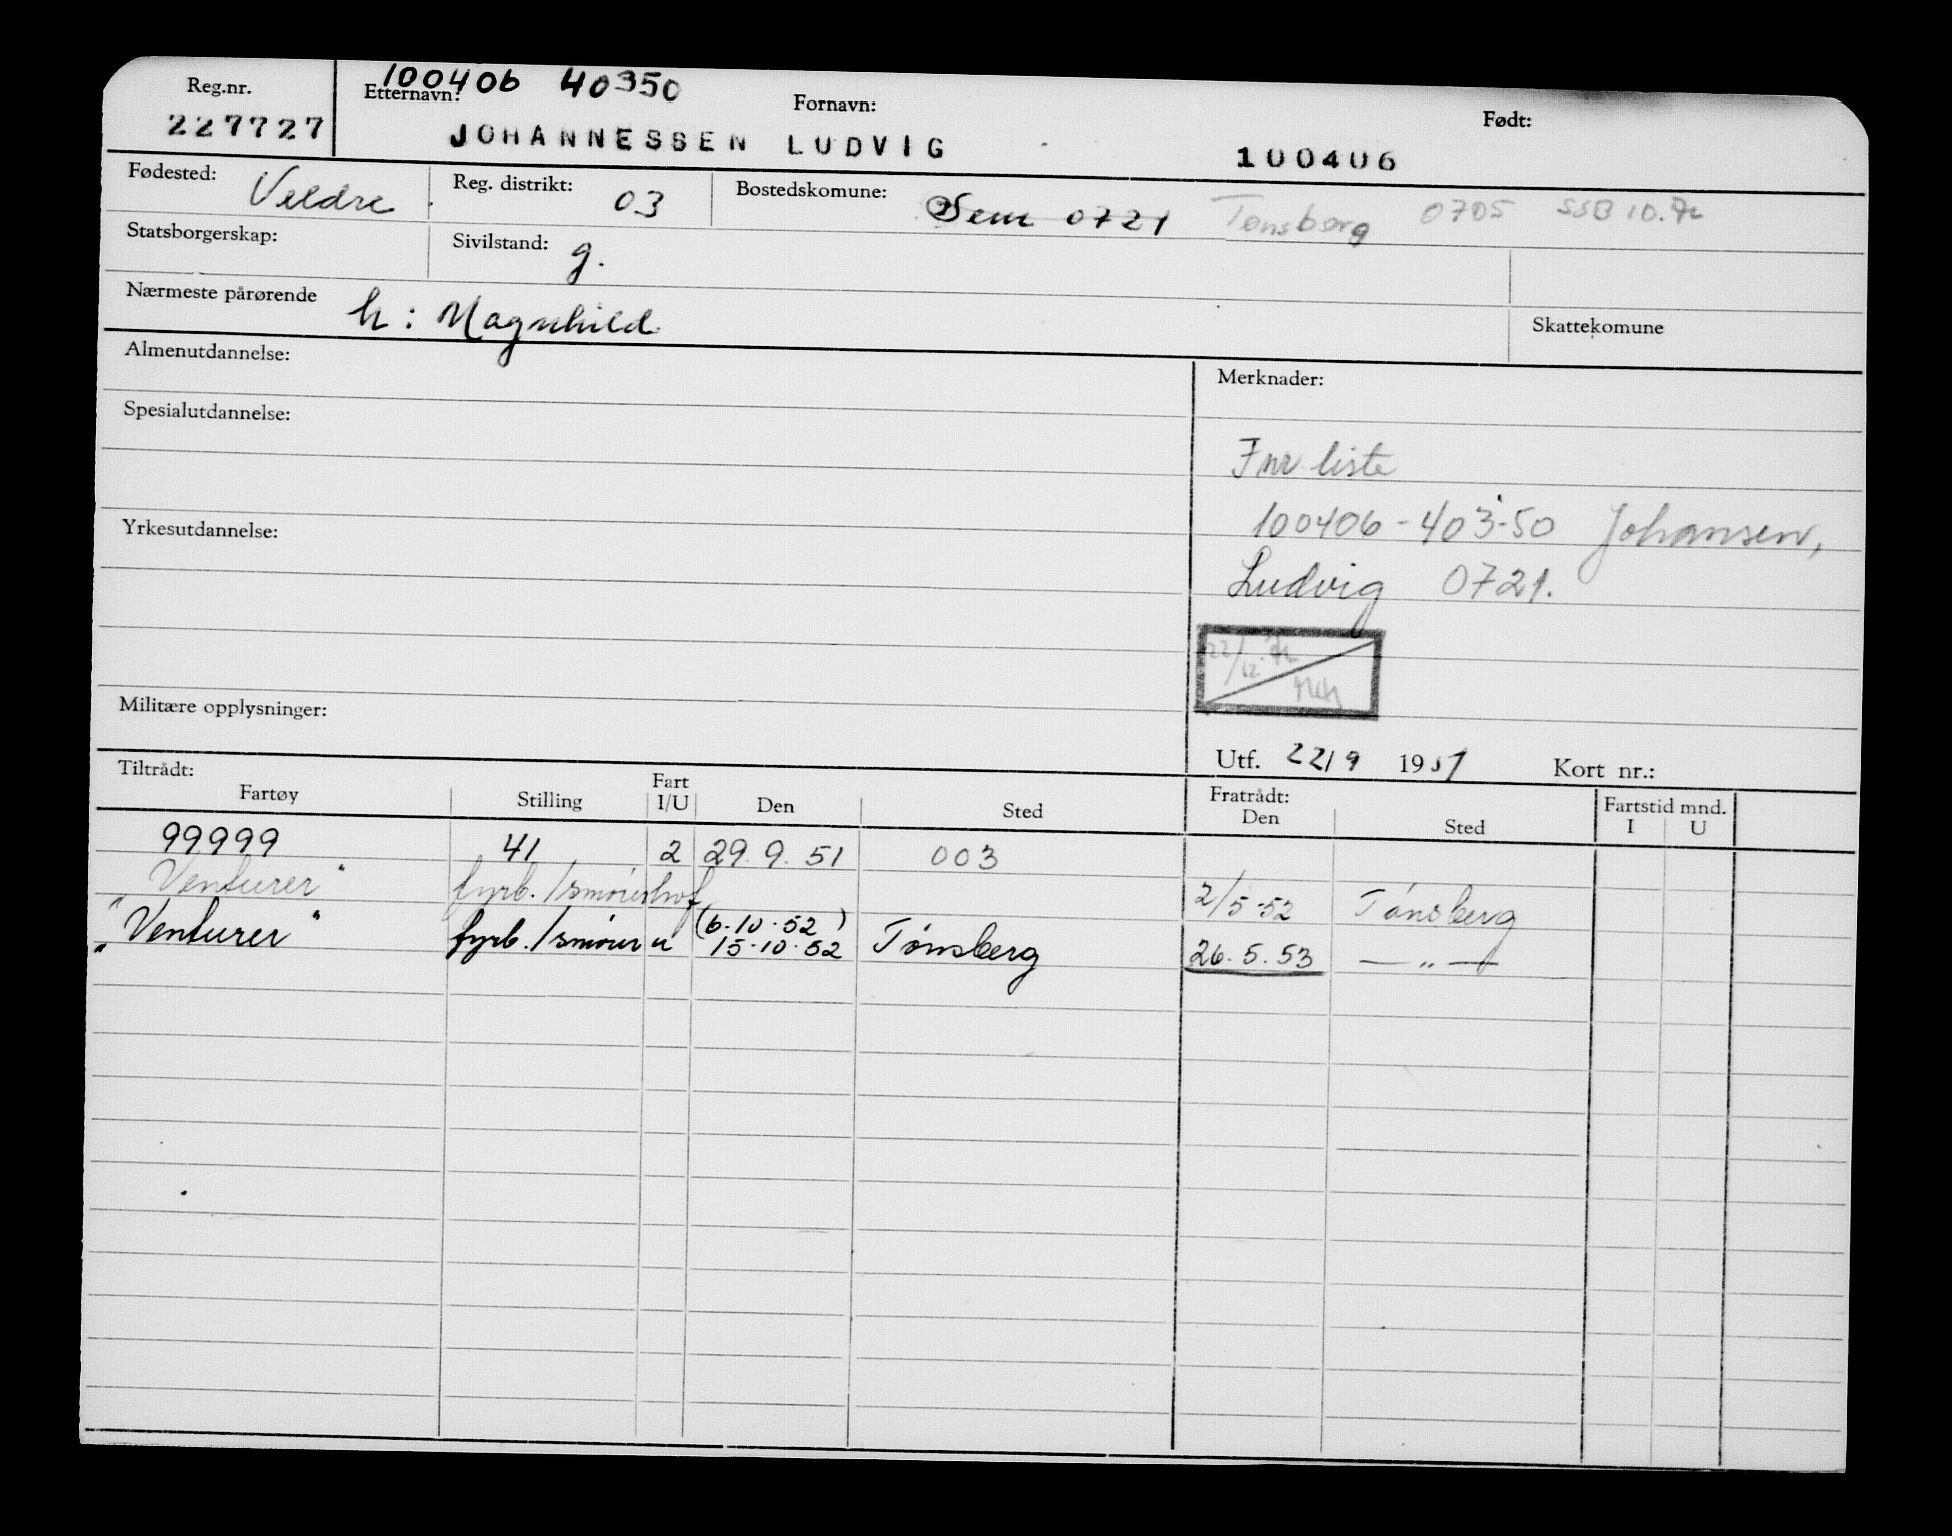 100406 40350
Reg.nr. Etternavn: Fornavn: Født:
227727 JOHANNESSEN LUDVIG 100406
Fødested: Veldre Reg. distrikt: 03 Bostedskomune: Sem 0721 Tønsberg 0705 SSB 10.72
Statsborgerskap: Sivilstand: g.
Nærmeste pårørende h: Magnhild Skattekomune
Almenutdannelse: Merknader:
Spesialutdannelse:
Fnr liste
Yrkesutdannelse: 100406-403-50 Johansen,
Ludvig 0721.
22/12.72
Militære opplysninger:
Utf. 22/9 1951 Kort nr.:
Tiltrådt: Fart Fratrådt: Fartstid mnd.
Fartøy Stilling I/U Den Sted Den Sted I U
99999 41 2 29.9.51 003
"Venturer" fyrb./smører hvf 2/5-52 Tønsberg
(6.10.52)
"Venturer" fyrb./smører u 15.10.52 Tønsberg 26.5.53 — " —